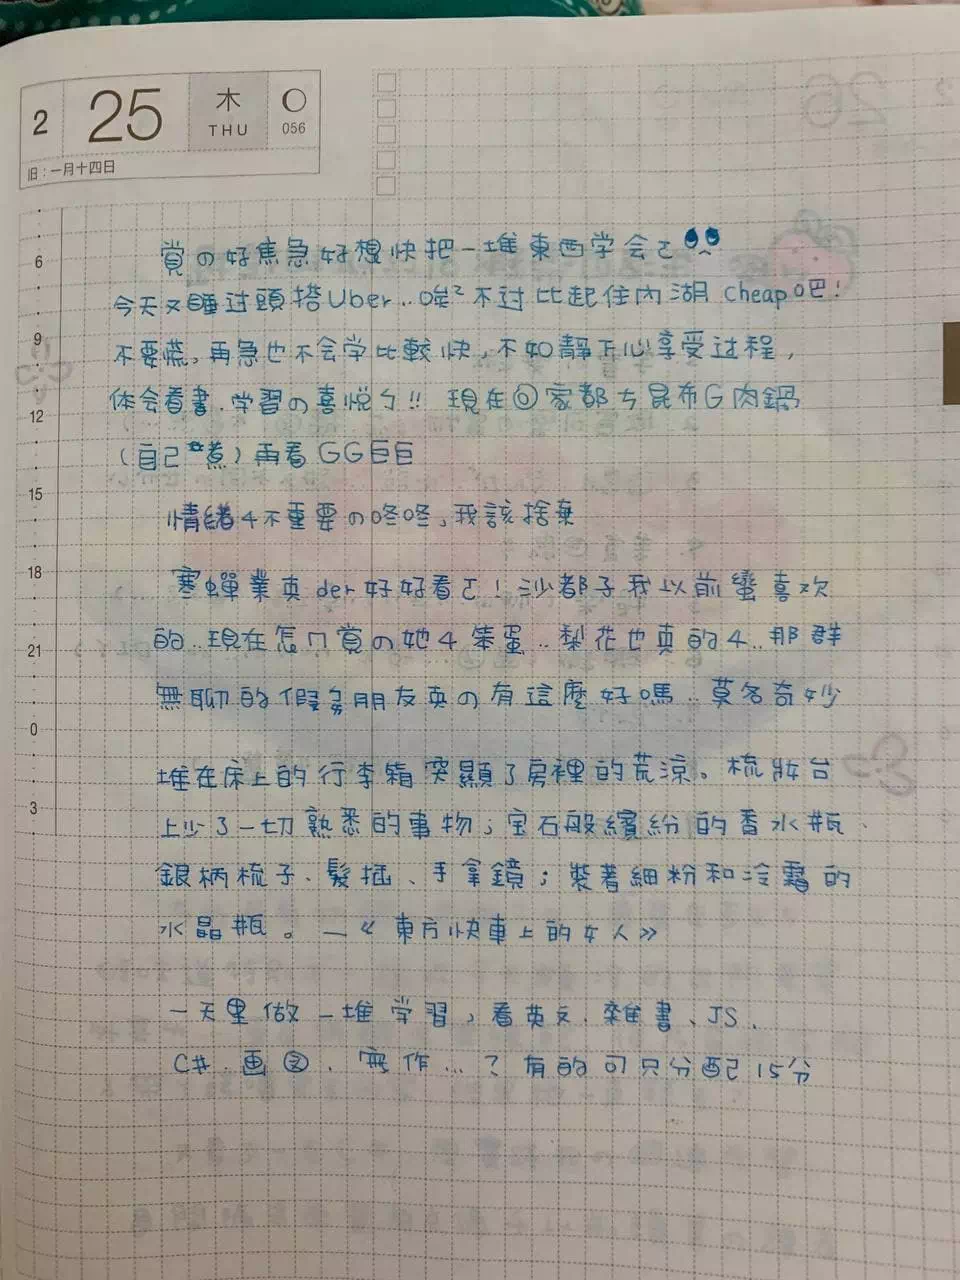 2 25 木 THU 056
旧:一月十四日
6
9
12
15
18
21
0
3
覚の好焦急好想快把一堆東西学会ㄛ
今天又睡过頭搭Uber..唉² 不过比起住內湖 cheap吧!
不要慌,再急也不会学比較快,不如靜下心享受过程,
体会看書、学習の喜悅ㄅ!! 現在回家都ㄘ昆布G肉鍋
(自己煮)再看GG巨巨
情緒4不重要の咚咚,我該捨棄
寒蟬業真der好好看ㄛ! 沙都子我以前蠻喜欢
的..現在怎ㄇ覚の她4笨蛋..梨花也真的4..那群
無聊的假掰朋友真の有這麼好嗎..莫名奇妙
堆在床上的行李箱突顯了房裡的荒涼。梳妝台
上少了一切熟悉的事物;宝石般繽紛的香水瓶、
銀柄梳子、髮插、手拿鏡;裝著細粉和冷霜的
水晶瓶。—《東方快車上的女人》
一天里做一堆学習,看英文、雜書、JS、
C#、画図、寫作...? 有的可只分配15分